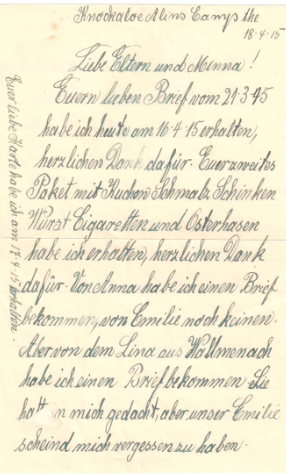 Knockaloe Aliens Camp the
18-4-15
Liebe Eltern und Minna!
Euern lieben Brief vom 21-3-15
habe ich heute am 16-4-15 erhalten,
herzlichen Dank dafür. Euer zweites
Paket mit Kuchen Schmalz Schinken
Wurst Cigaretten und Osterhasen
habe ich erhalten, herzlichen Dank
dafür. Von Anna habe ich einen Brief
bekommen, von Emilie noch keinen.
Aber von dem Lina aus Wallmenach
habe ich einen Brief bekommen. Sie
hatt n mich gedacht, aber unser Emilie
scheind mich vergessen zu haben.
Euer liebe Karte habe ich am 17-4-15 erhalten.